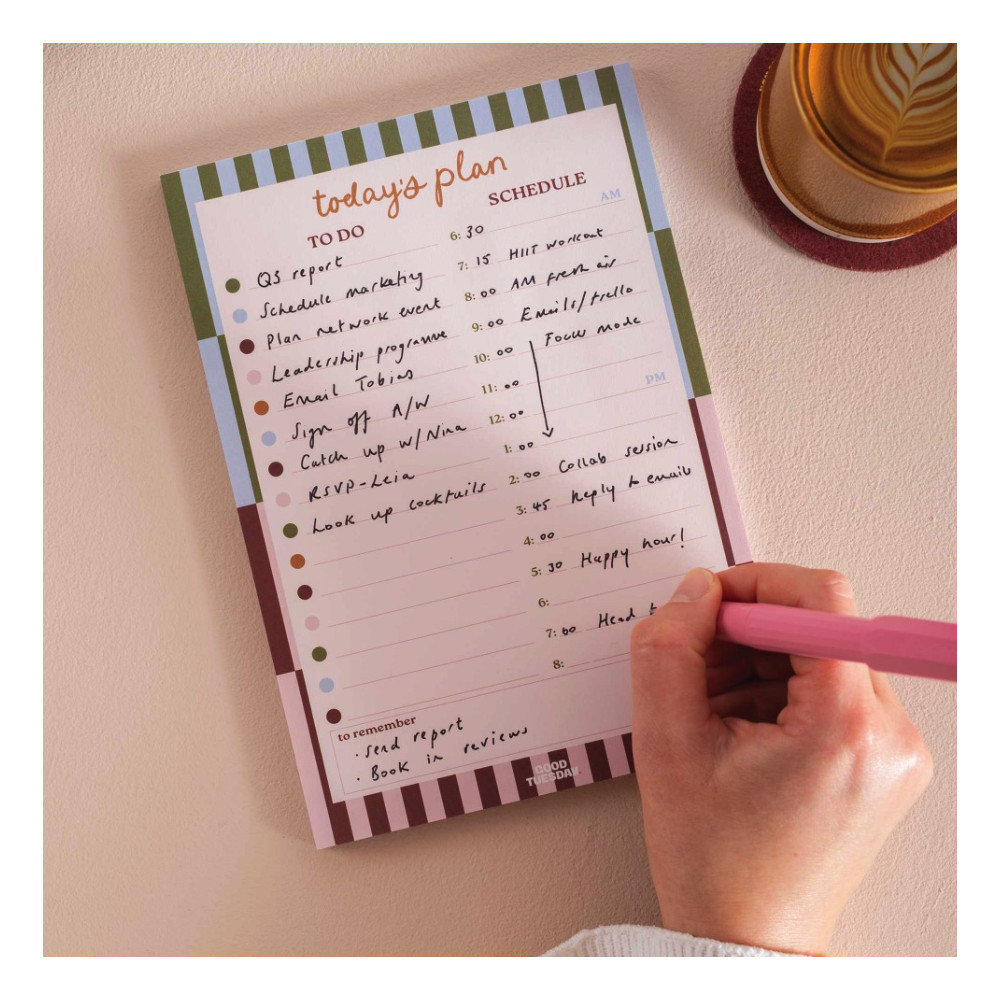 today's plan
TO DO
QS report
Schedule marketing
Plan network event
Leadership programme
Email Tobias
Sign off A/W
Catch up w/Nina
RSVP-Leia
Look up cocktails
SCHEDULE
AM
6: 30
7: 15 HIIT workout
8: 00 AM Fresh air
9: 00 Emails/trello
10: 00 Focus mode
11: 00
PM
12: 00
1: 00
2: 00 Collab session
3: 45 Reply to emails
4: 00
5: 30 Happy hour!
6:
7: 00 Head
8:
to remember
· Send report
· Book in reviews
GOOD
TUESDAY